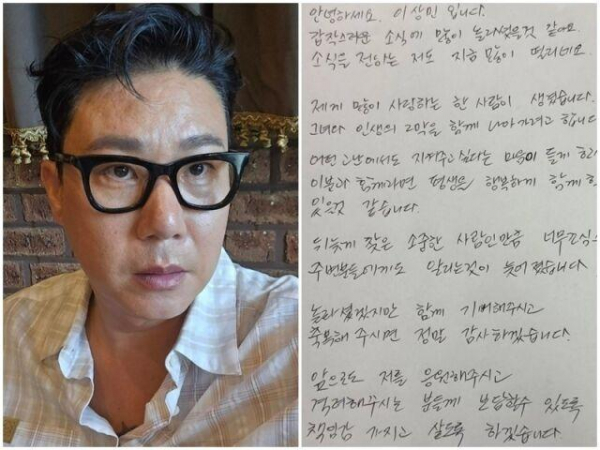 안녕하세요. 이상민 입니다.
갑작스러운 소식에 많이 놀라셨을것 같아요.
소식을 전하는 저도 지금 많이 떨리네요.
제게 많이 사랑하는 한 사람이 생겼습니다.
그녀와 인생의 2막을 함께 나아가려고 합니다
어떤 고난에서도 지켜주고 싶다는 마음이 들게 하
이분과 함께라면 평생을 행복하게 함께 할
있을것 같습니다.
뒤늦게 찾은 소중한 사람인만큼 너무 조심스
주변분들에게도 알리는것이 늦어졌습니다
놀라셨겠지만 함께 기뻐해주시고
축복해 주시면 정말 감사하겠습니다.
앞으로도 저를 응원해주시고
격려해주시는 분들께 보답할수 있도록
책임감 가지고 살도록 하겠습니다.